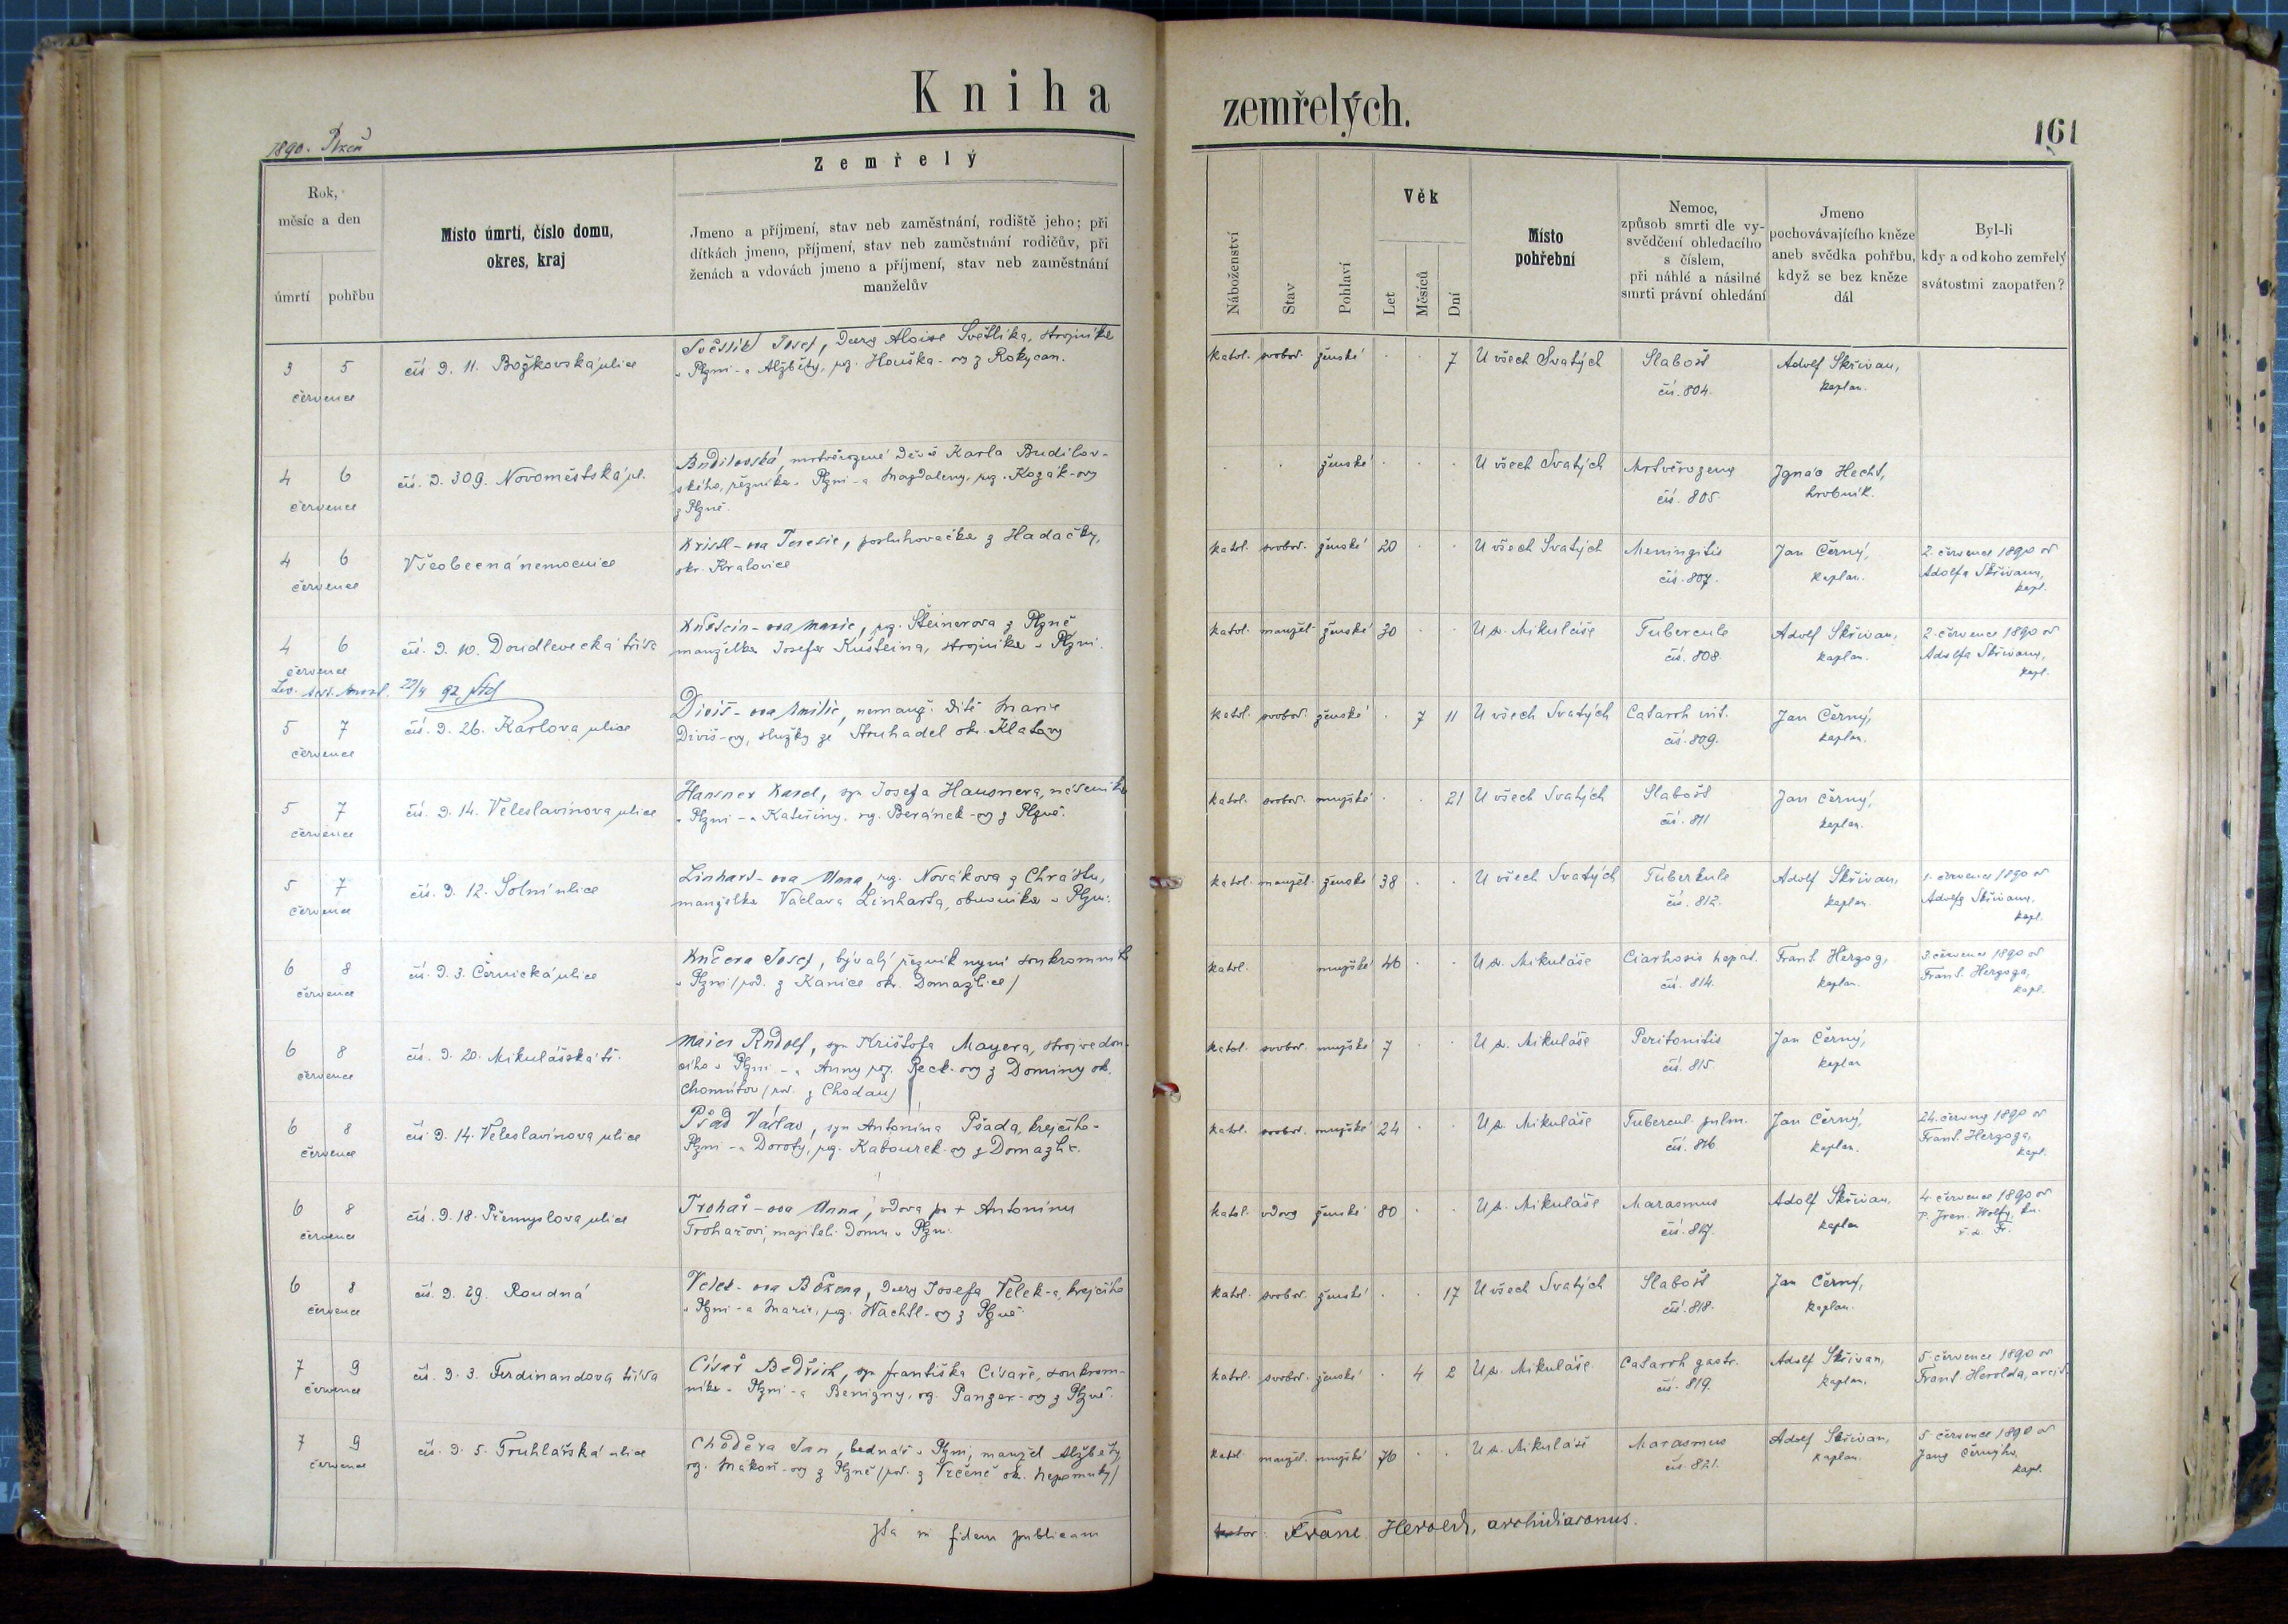 Kniha zemřelých.
161
1890. Plzeň
Rok, měsíc a den
úmrtí
pohřbu
Místo úmrtí, číslo domu, okres, kraj
Zemřelý
Jmeno a příjmení, stav neb zaměstnání, rodiště jeho; při
dítkách jmeno, příjmení, stav neb zaměstnání rodičův, při
ženách a vdovách jmeno a příjmení, stav neb zaměstnání
manželův
Náboženství
Stav
Pohlaví
Věk
Let
Měsíců
Dní
Místo pohřební
Nemoc,
způsob smrti dle vy-
svědčení ohledacího
s číslem,
při náhlé a násilné
smrti právní ohledání
Jmeno
pochovávajícího kněze
aneb svědka pohřbu,
když se bez kněze
dál
Byl-li
kdy a od koho zemřelý
svátostmi zaopatřen?
3 5 července
čís. d. 11. Božkovská ulice
Josef, Aloise Světlíka, strojníka
v Plzni - a Alžběty, roz. Houška-ovy z Rokycan.
katol. svobod. ženské 7
U všech Svatých
Slabost
čís. 804.
Adolf Skřivan,
kaplan.
4 6 července
čís. d. 309. Novoměstská ul.
Budilovská, mrtvěrozené dítě Karla Budilov-
ského, řezníka v Plzni - a Magdaleny, roz. Kozák-ovy
z Plzně.
ženské
U všech Svatých
Mrtvěrozený
čís. 805.
Ignác Hecht,
hrobník.
4 6 července
Všeobecná nemocnice
Kristl-ova Teresie, posluhovačka z Hadačky,
okr. Kralovice
katol. svobod. ženské 20
U všech Svatých
Meningitis
čís. 807.
Jan Černý,
kaplan.
2. července 1890 od
Adolfa Skřivana,
kapl.
4 6 července
čís. d. 10. Doudlevecká třída
Kuštein-ova Marie, roz. Šteinerova z Plzně
manželka Josefa Kušteina, strojníka v Plzni.
katol. manžel. ženské 30
U sv. Mikuláše
Tubercule
čís. 808.
Adolf Skřivan,
kaplan.
2. července 1890 od
Adolfa Skřivana,
kapl.
5 7 července
čís. d. 26. Karlova ulice
Diviš-ova Emilie, nemanž. dítě Marie
Diviš-ovy, služky ze Struhadel okr. Klatovy
katol. svobod. ženské 7 11
U všech Svatých
Catarrh int.
čís. 809.
Jan Černý,
kaplan.
5 7 července
čís. d. 14. Veleslavínova ulice
Hausner Karel, syn Josefa Hausnera, nádeníka
v Plzni - a Kateřiny, roz. Beránek-ovy z Plzně.
katol. svobod. mužské 21
U všech Svatých
Slabost
čís. 811
Jan Černý,
kaplan.
5 7 července
čís. d. 12. Solní ulice
Linhart-ova Anna, roz. Novákova z Chrástu,
manželka Václava Linharta, obuvníka v Plzni.
katol. manžel. ženské 38
U všech Svatých
Tuberkule
čís. 812.
Adolf Skřivan,
kaplan
1. července 1890 od
Adolfa Skřivana,
kapl.
6 8 července
čís. d. 3. Černická ulice
Kučera Josef, bývalý řezník nyní soukromník
v Plzni (rod. z Kanice okr. Domažlice)
katol. mužské 46
U sv. Mikuláše
Ciarhosis hepat.
čís. 814.
Frant. Herzog,
kaplan.
3. července 1890 od
Frant. Herzoga,
kapl.
6 8 července
čís. d. 20. Mikulášská tř.
Maier Rudolf, syn Krištofa Mayera, strojvedou-
cího v Plzni - a Anny roz. Peck-ovy z Dominy ok.
Chomutov (rod. z Chodau)
katol. svobod. mužské 7
U sv. Mikuláše
Peritonitis
čís. 815.
Jan Černý,
kaplan
6 8 července
čís. d. 14. Veleslavínova ulice
Pšád Václav, syn Antonína Pšada, krejčího v
Plzni - a Doroty, roz. Kabourek-ovy z Domažlic.
katol. svobod. mužské 24
U sv. Mikuláše
Tubercul. pulm.
čís. 816
Jan Černý,
kaplan.
24. června 1890 od
Frant. Herzoga,
kapl.
6 8 července
čís. d. 18. Přemyslova ulice
Trohař-ova Anna, vdova po + Antonínu
Trohařovi, majiteli domu v Plzni.
katol. vdova ženské 80
U sv. Mikuláše
Marasmus
čís. 817.
Adolf Skřivan,
kaplan
4. července 1890 od
6 8 července
čís. d. 29. Roudná
Velek-ova Božena, dcera Josefa Velek-a, krejčího
v Plzni - a Marie, roz. Wachtl-ovy z Plzně.
katol. svobod. ženské 17
U všech Svatých
Slabost
čís. 818.
Jan Černý,
kaplan.
7 9 července
čís. d. 3. Ferdinandova třída
Císař Bedřich, syn Františka Císaře, soukrom-
níka v Plzni - a Benigny, roz. Panzer-ovy z Plzně.
katol. svobod. ženské 4 2
U sv. Mikuláše
Catarrh gastr.
čís. 819.
Adolf Skřivan,
kaplan.
5. července 1890 od
Frant. Herolda, arcid.
7 9 července
čís. d. 5. Truhlářská ulice
Choděra Jan, bednář v Plzni, manžel Alžběty,
roz. Makoň-ovy z Plzně (rod. z Vrčeně ok. Nepomuky)
katol. manžel. mužské 76
U sv. Mikuláše
Marasmus
čís. 821.
Adolf Skřivan,
kaplan.
5. července 1890 od
Jana Černýho,
kapl.
Ita in fidem publicam
Franc. Herold, archidiaconus.